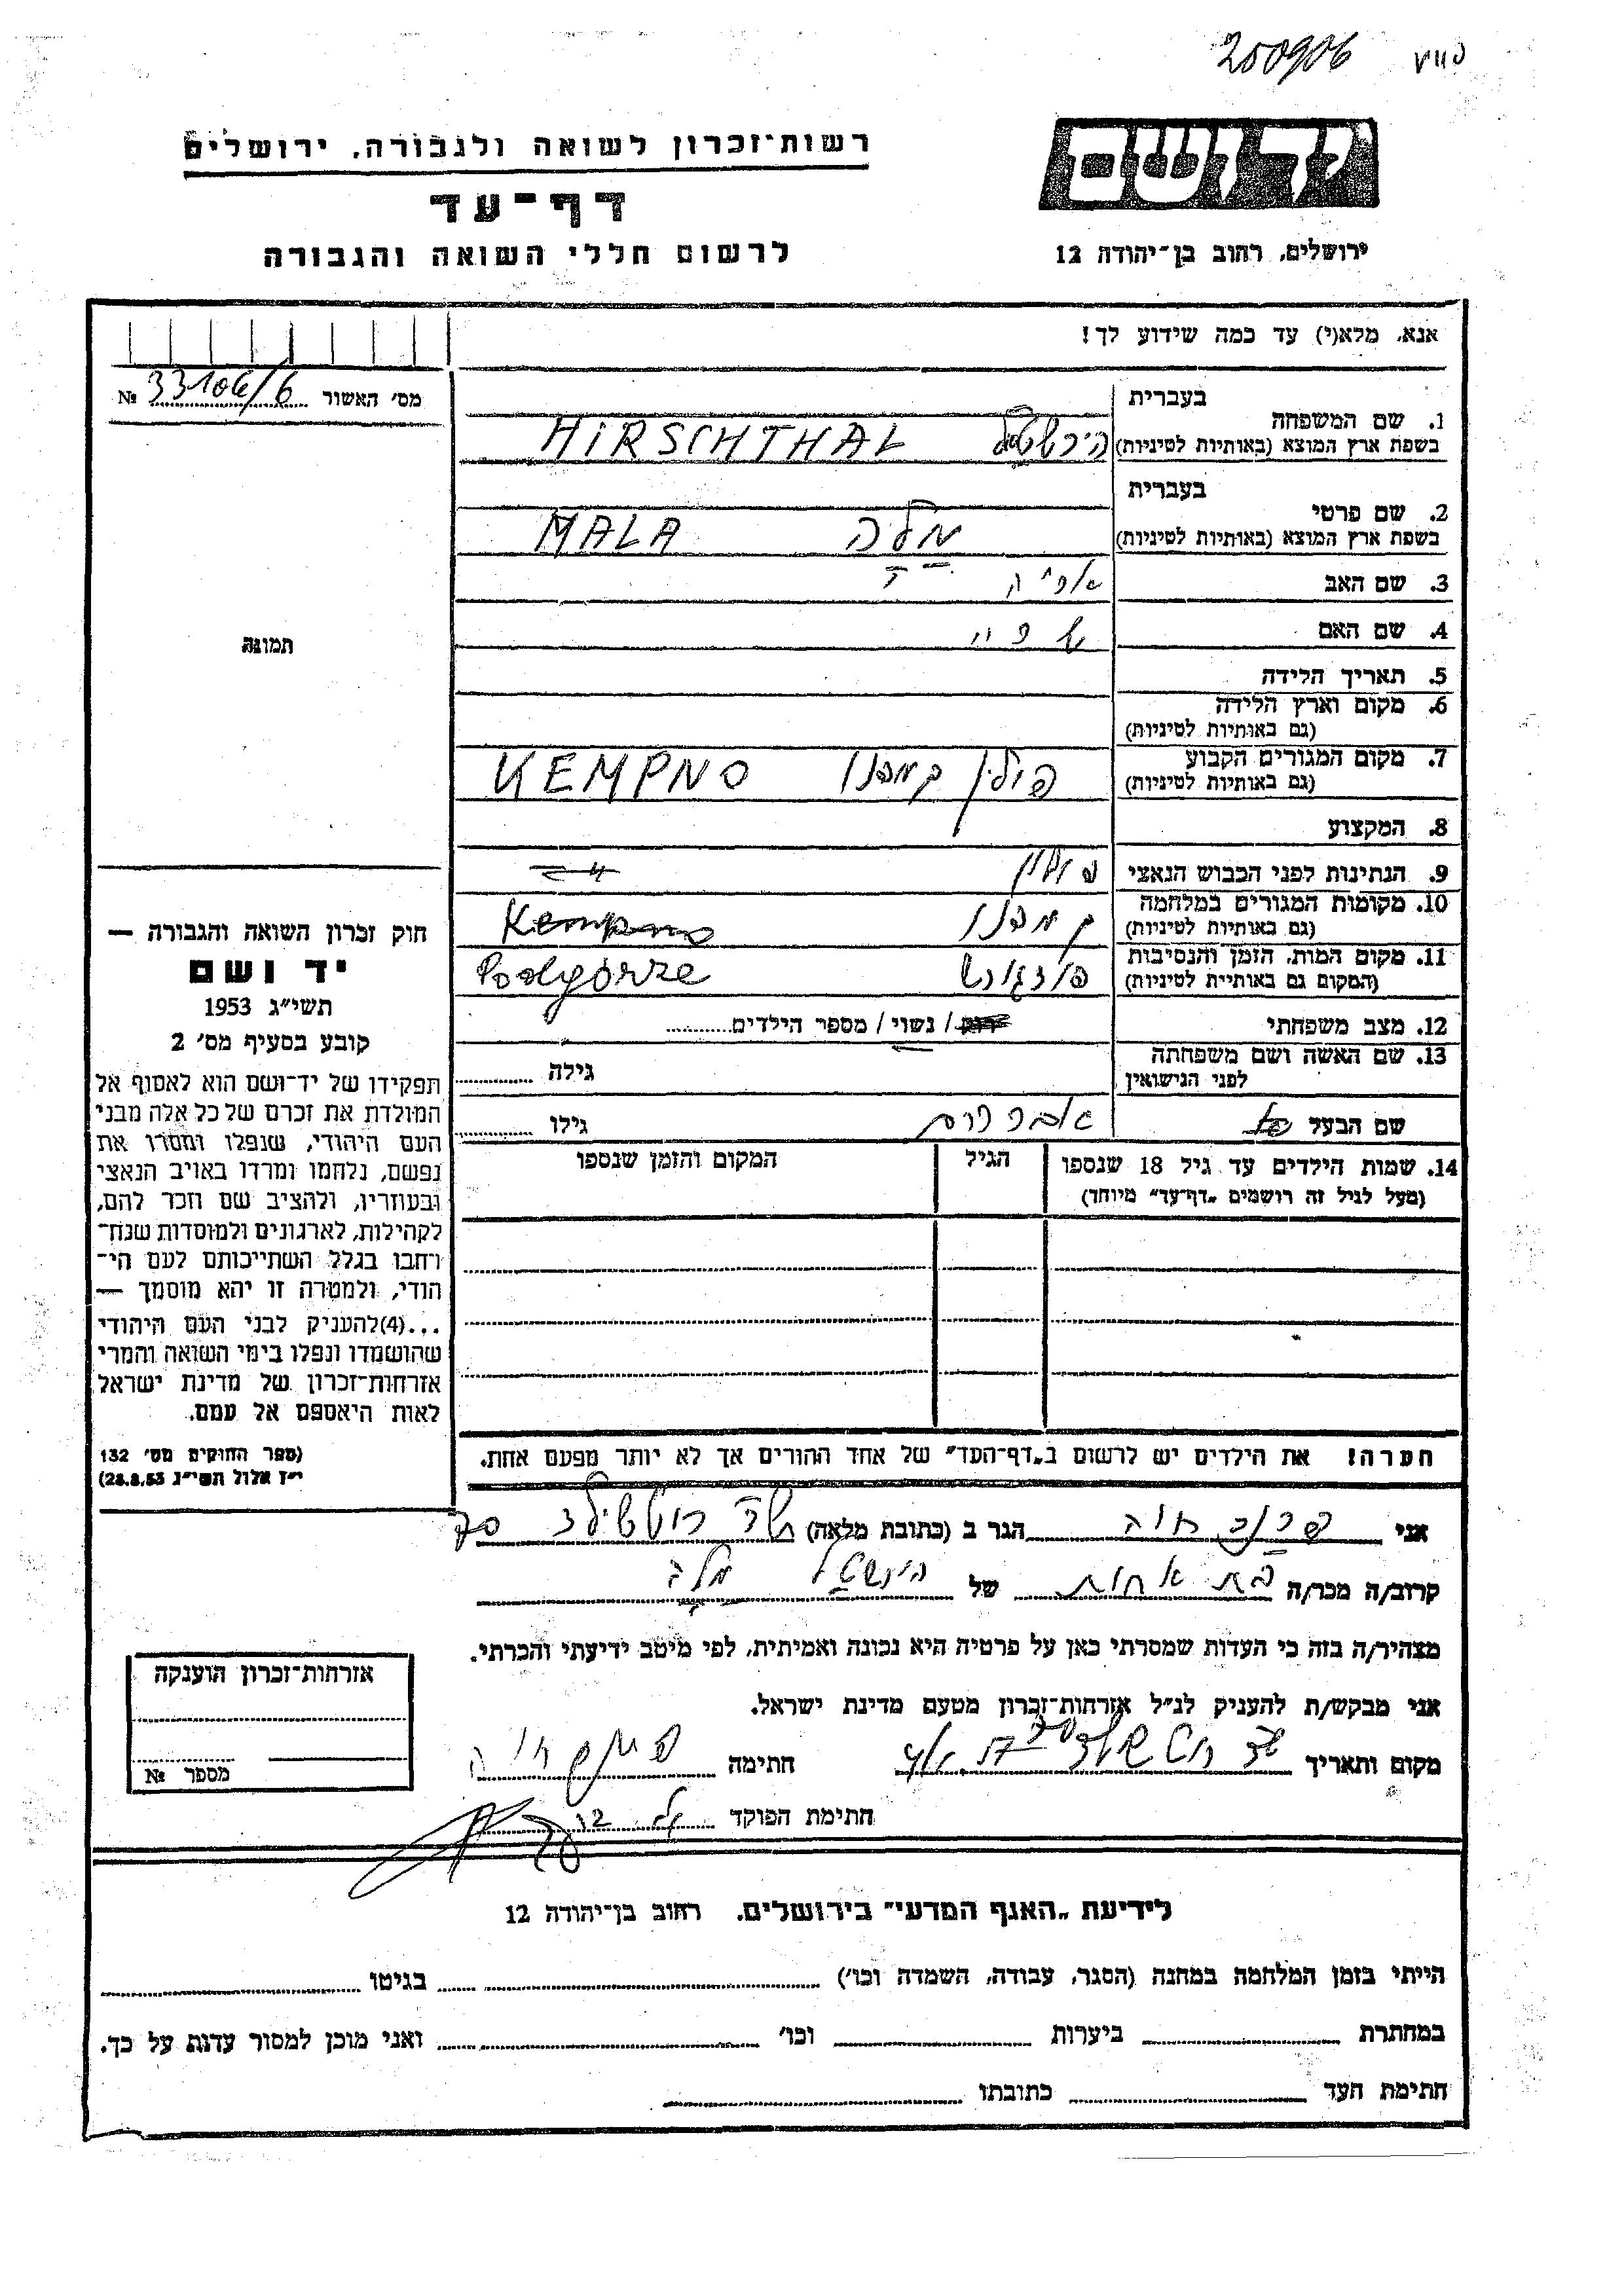 200906
רשות־זכרון לשואה ולגבורה, ירושלים
דף־עד
לרשום חללי השואה והגבורה
יד ושם
ירושלים, רחוב בן־יהודה 12
אנא, מלא(י) עד כמה שידוע לך!
מס׳ האשור 33106/6 №
תמונה
1. שם המשפחה
בעברית
בשפת ארץ המוצא (באותיות לטיניות)
הירשטל HIRSCHTHAL
2. שם פרטי
בעברית
בשפת ארץ המוצא (באותיות לטיניות)
מלה MALA
3. שם האב
4. שם האם
5. תאריך הלידה
6. מקום וארץ הלידה
(גם באותיות לטיניות)
7. מקום המגורים הקבוע
(גם באותיות לטיניות)
פולין קמפנו KEMPNO
8. המקצוע
9. הנתינות לפני הכבוש הנאצי פולין
10. מקומות המגורים במלחמה
(גם באותיות לטיניות)
קמפנו Kempno
11. מקום המות, הזמן והנסיבות
(המקום גם באותיית לטיניות)
פודגורש Podgórze
12. מצב משפחתי רוק / נשוי / מספר הילדים
13. שם האשה ושם משפחתה
לפני הנישואין
גילה
שם הבעל גילו
14. שמות הילדים עד גיל 18 שנספו
(מעל לגיל זה רושמים „דף־עד״ מיוחד)
הגיל
המקום והזמן שנספו
הערה! את הילדים יש לרשום ב„דף־העד״ של אחד ההורים אך לא יותר מפעם אחת.
חוק זכרון השואה והגבורה —
יד ושם
תשי״ג 1953
קובע בסעיף מס׳ 2
תפקידו של יד־ושם הוא לאסוף אל
המולדת את זכרם של כל אלה מבני
העם היהודי, שנפלו ומסרו את
נפשם, נלחמו ומרדו באויב הנאצי
ובעוזריו, ולהציב שם וזכר להם,
לקהילות, לארגונים ולמוסדות שנח־
רבו בגלל השתייכותם לעם הי־
הודי, ולמטרה זו יהא מוסמך —
...(4)להעניק לבני העם היהודי
שהושמדו ונפלו בימי השואה והמרי
אזרחות־זכרון של מדינת ישראל
לאות היאספם אל עמם.
(ספר החוקים מס׳ 132
י״ז אלול תשי״ג 28.8.53)
אני חוה הגר ב (כתובת מלאה) שד רוטשילד
קרוב/ה מכר/ה בת אחות של הירשטל מלה
מצהיר/ה בזה כי העדות שמסרתי כאן על פרטיה היא נכונה ואמיתית, לפי מיטב ידיעתי והכרתי.
אני מבקש/ת להעניק לנ״ל אזרחות־זכרון מטעם מדינת ישראל.
מקום ותאריך שד רוטשילד חתימה
חתימת הפוקד
אזרחות־זכרון הוענקה
מספר №
לידיעת „האגף המדעי״ בירושלים, רחוב בן־יהודה 12
הייתי בזמן המלחמה במחנה (הסגר, עבודה, השמדה וכו׳) בגיטו
במחתרת ביערות וכו׳ ואני מוכן למסור עדות על כך.
חתימת העד כתובתו